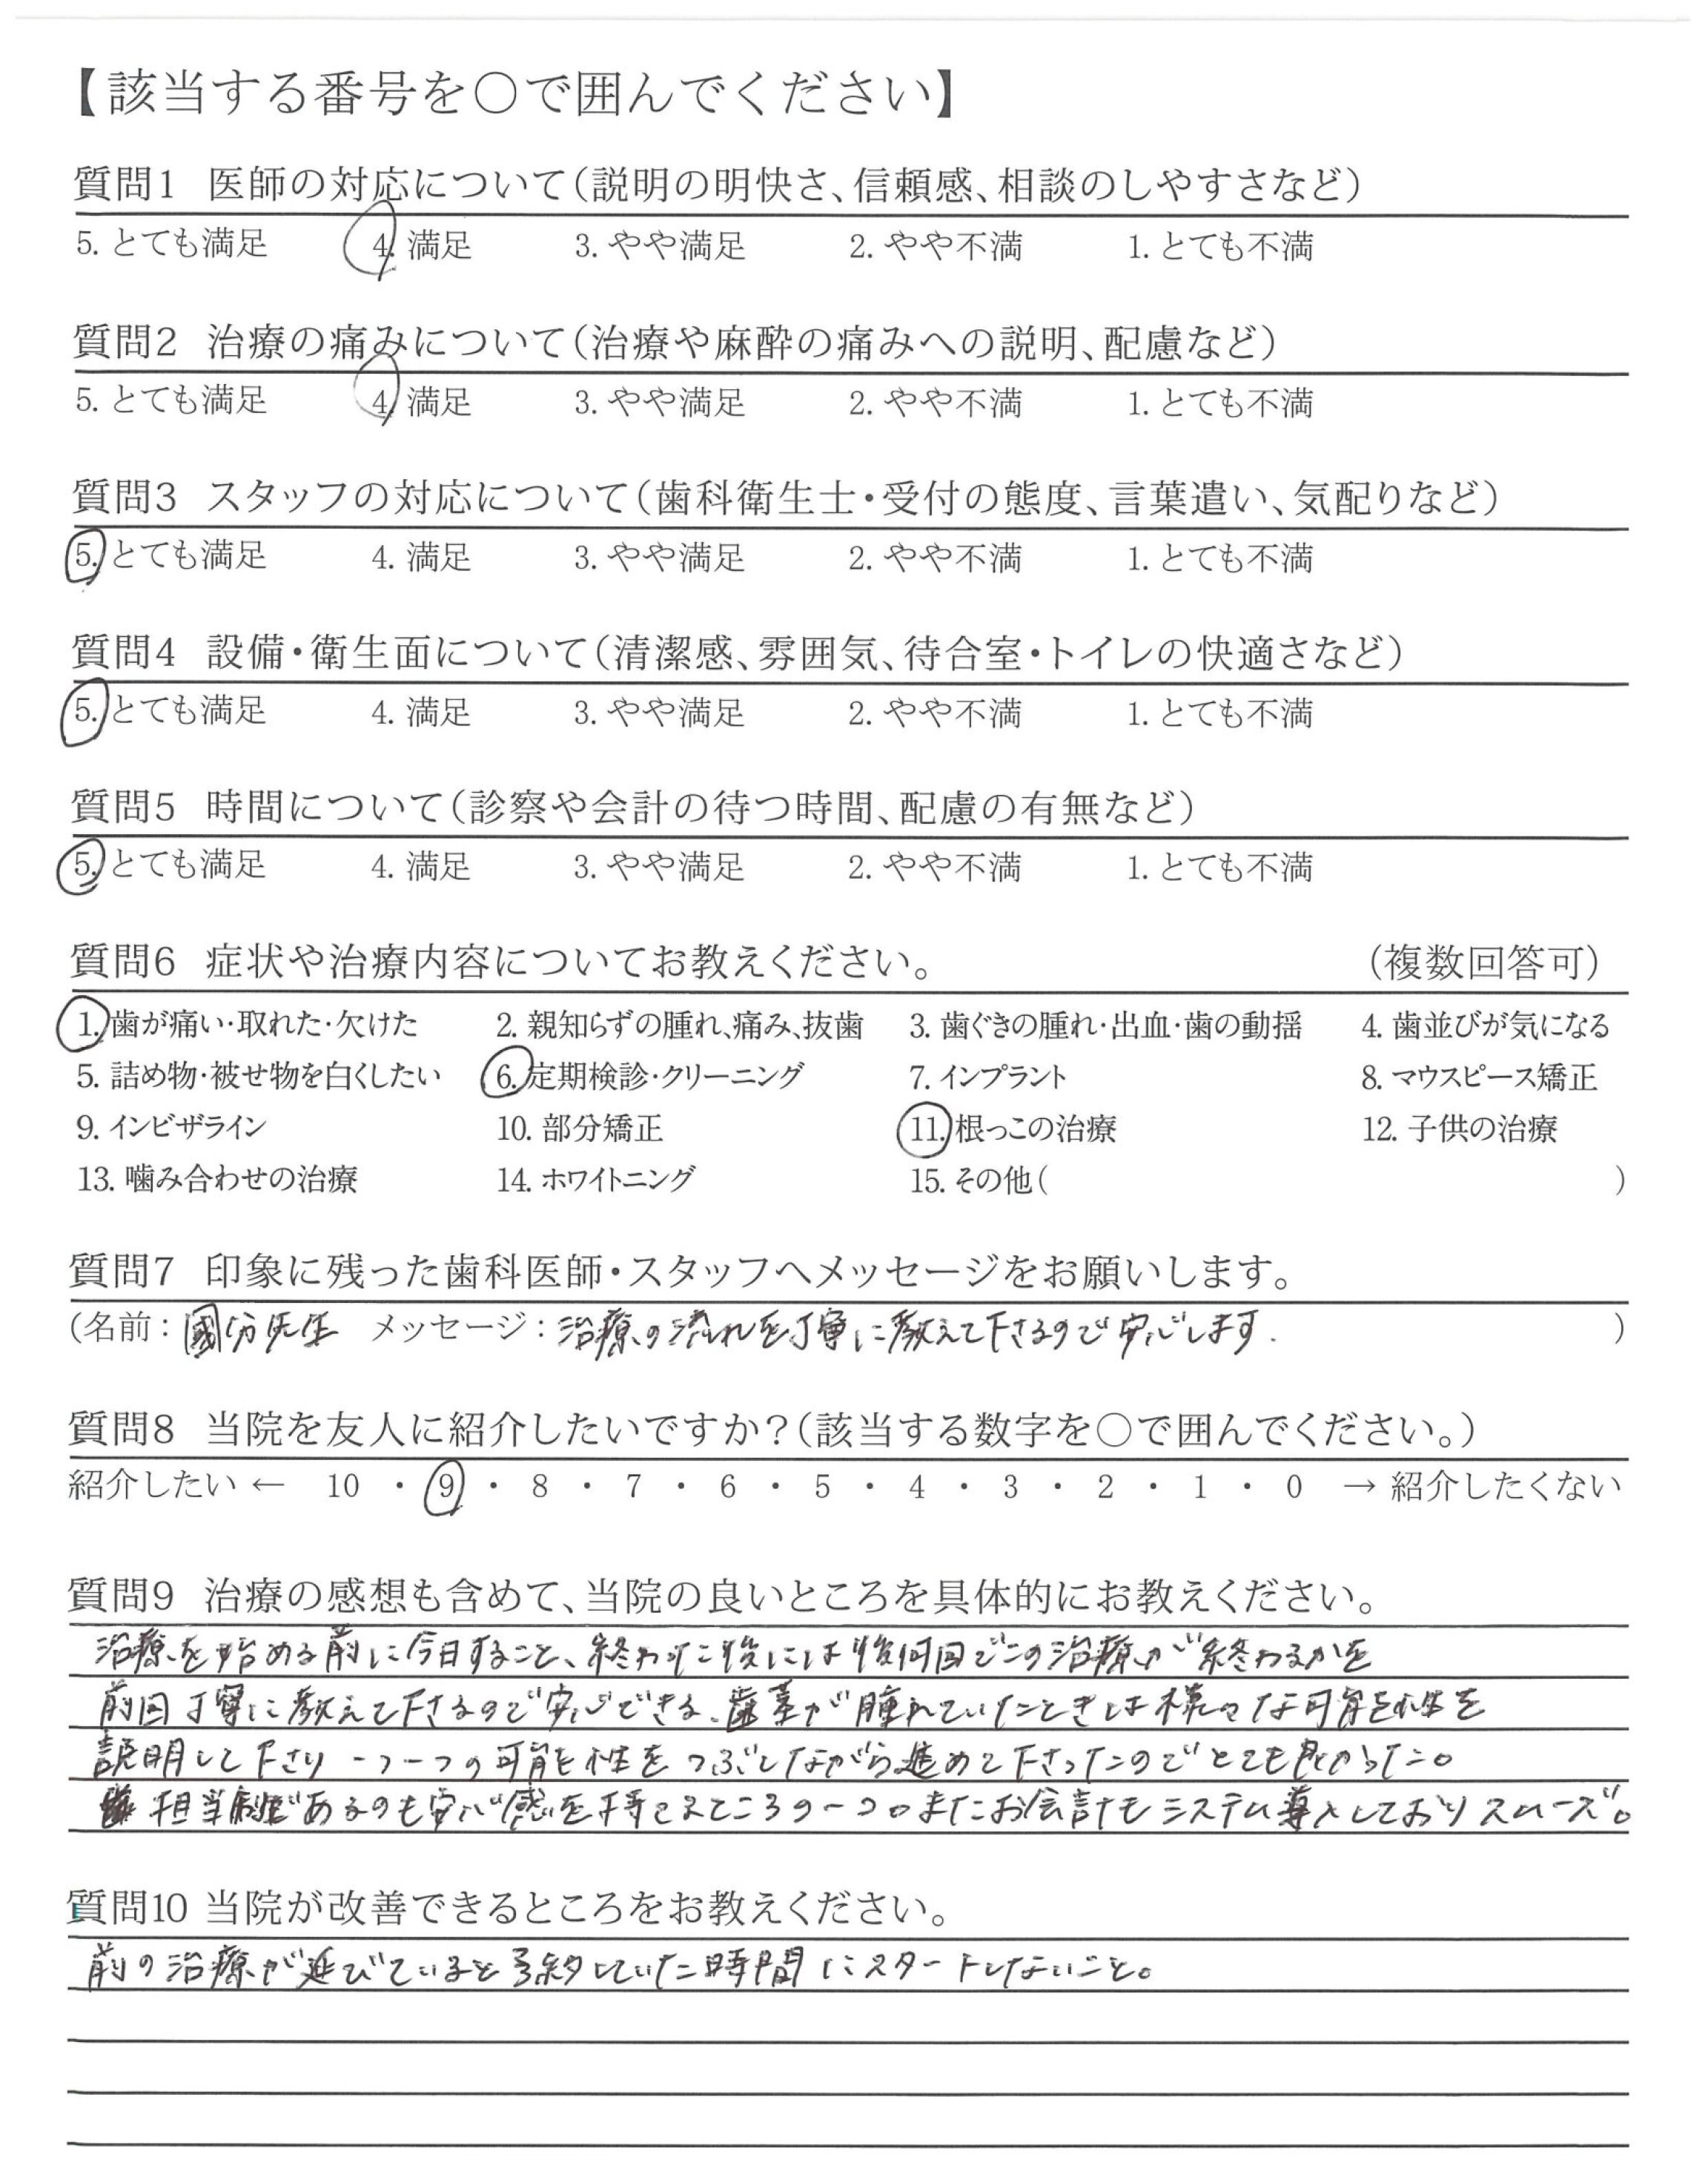 【該当する番号を○で囲んでください】
質問1 医師の対応について（説明の明快さ、信頼感、相談のしやすさなど）
5. とても満足 4. 満足 3. やや満足 2. やや不満 1. とても不満
質問2 治療の痛みについて（治療や麻酔の痛みへの説明、配慮など）
5. とても満足 4. 満足 3. やや満足 2. やや不満 1. とても不満
質問3 スタッフの対応について（歯科衛生士・受付の態度、言葉遣い、気配りなど）
5. とても満足 4. 満足 3. やや満足 2. やや不満 1. とても不満
質問4 設備・衛生面について（清潔感、雰囲気、待合室・トイレの快適さなど）
5. とても満足 4. 満足 3. やや満足 2. やや不満 1. とても不満
質問5 時間について（診察や会計の待つ時間、配慮の有無など）
5. とても満足 4. 満足 3. やや満足 2. やや不満 1. とても不満
質問6 症状や治療内容についてお教えください。 （複数回答可）
1. 歯が痛い・取れた・欠けた 2. 親知らずの腫れ、痛み、抜歯 3. 歯ぐきの腫れ・出血・歯の動揺 4. 歯並びが気になる
5. 詰め物・被せ物を白くしたい 6. 定期検診・クリーニング 7. インプラント 8. マウスピース矯正
9. インビザライン 10. 部分矯正 11. 根っこの治療 12. 子供の治療
13. 噛み合わせの治療 14. ホワイトニング 15. その他（ ）
質問7 印象に残った歯科医師・スタッフへメッセージをお願いします。
（名前：國分先生 メッセージ：治療の流れを丁寧に教えて下さるので安心します. ）
質問8 当院を友人に紹介したいですか？（該当する数字を○で囲んでください。）
紹介したい ← 10 ・ 9 ・ 8 ・ 7 ・ 6 ・ 5 ・ 4 ・ 3 ・ 2 ・ 1 ・ 0 → 紹介したくない
質問9 治療の感想も含めて、当院の良いところを具体的にお教えください。
治療を始める前に今日すること、終わった後には後何回でこの治療が終わるかを
前回丁寧に教えて下さるので安心できる。歯茎が腫れていたときは様々な可能性を
説明して下さり一つ一つの可能性をつぶしながら進めて下さったのでとても良かった。
担当制であるのも安心感を持てるところの一つ。またお会計もシステム導入しておりスムーズ。
質問10 当院が改善できるところをお教えください。
前の治療が延びていると予約していた時間にスタートしないこと。